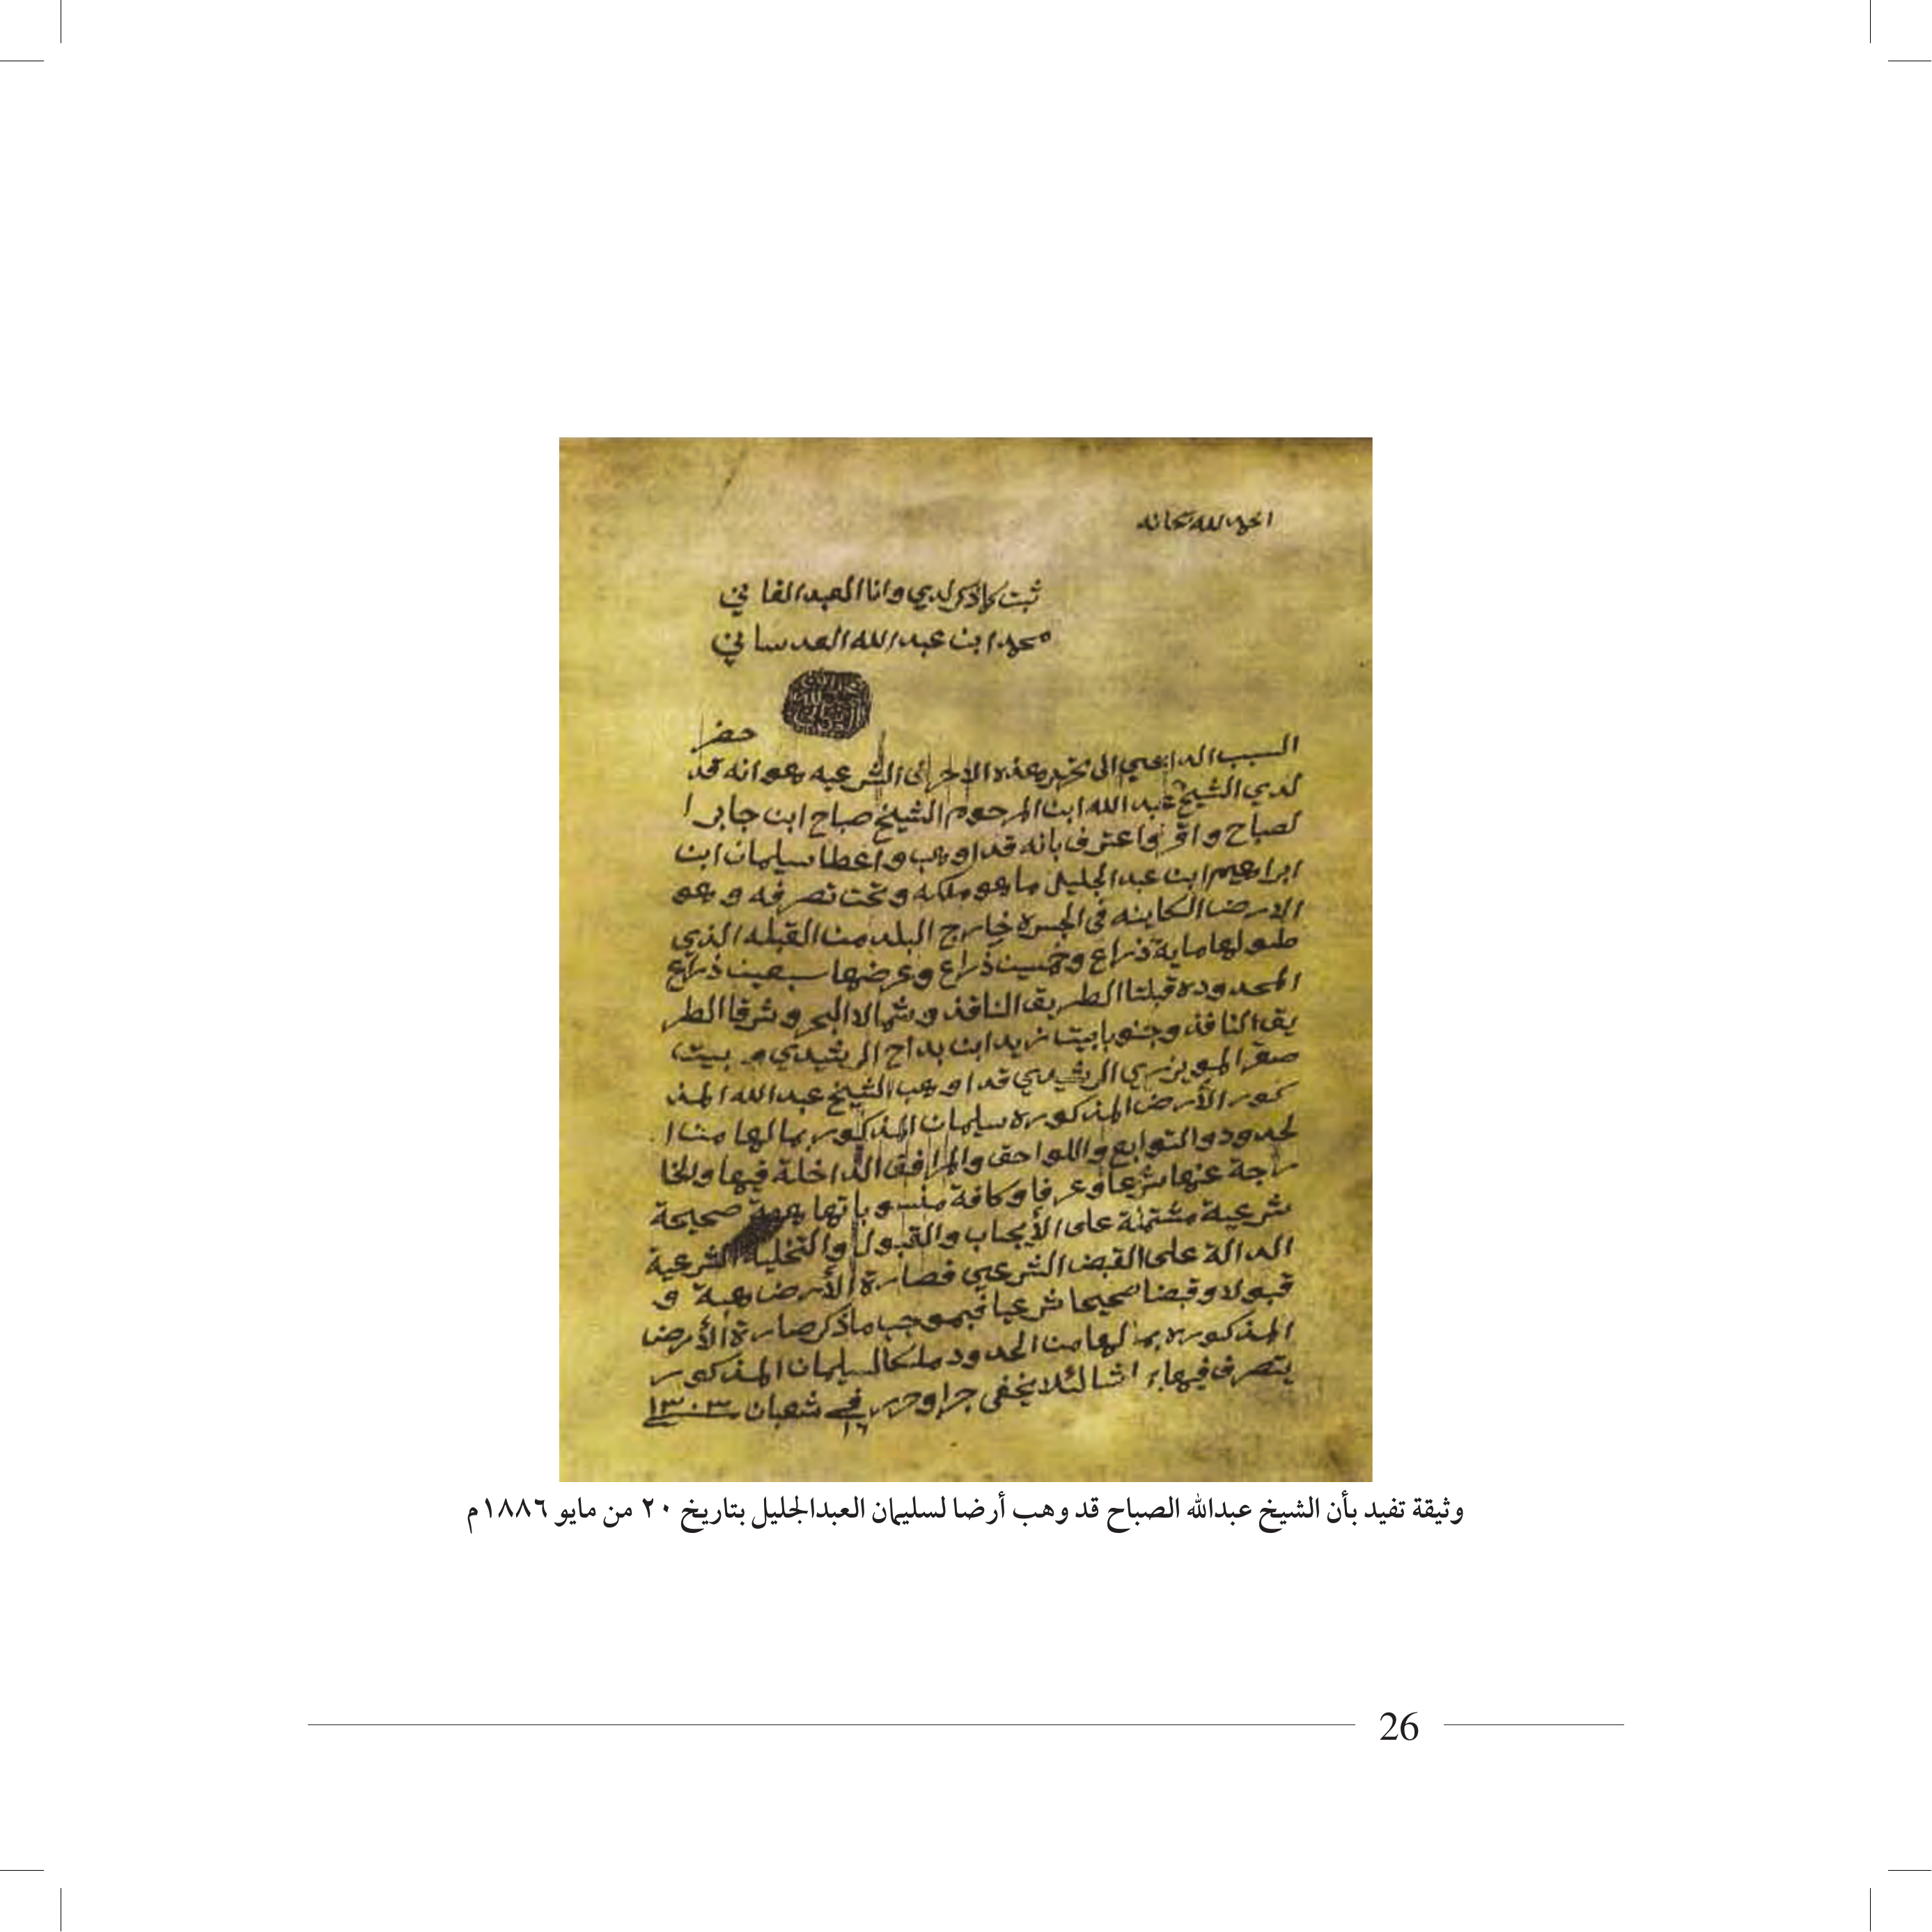 الحمد لله سبحانه
ثبت كما ذكر لدي وانا العبد الفاني
محمد ابن عبد الله العدساني
السبب الداعي الى تحرير هذه الاحرف الشرعيه هو انه قد حضر
لدي الشيخ عبد الله ابن المرحوم الشيخ صباح ابن جابر ا
لصباح واقر واعترف بانه قد اوهب واعطا سليمان ابن
ابراهيم ابن عبد الجليل ما هو ملكه وتحت تصرفه وهو
الارض الكاينه في خارج البلد من القبله الذي
طولها ماية ذراع وخمسين ذراع وعرضها سبعين ذراع
المحدوده قبلتا الطريق النافذ وشمالا البحر وشرقا الطر
يق النافذ وجنوبا بيت زيد ابن بداح الرشيدي و بيت
صقر المويزري الرشيدي قد اوهب الشيخ عبد الله المذ
كور الأرض المذكوره سليمان المذكور بما لها من ا
لحدود والتوابع واللواحق والمرافق الداخلة فيها والخا
رجة عنها شرعا وعرفا وكافة منسوباتها هبة صحيحة
شرعية مشتملة على الأيجاب والقبول والتخلية الشرعية
الدالة على القبض الشرعي فصارة الأرض هبة و
قبولا وقبضا صحيحا شرعيا فبموجب ما ذكر صارة الأرض
المذكوره بما لها من الحدود ملكا لسليمان المذكور
يتصرف فيها بما شا لئلا يخفى جرا وحرر في ١٦ شعبان سنة ١٣٠٣
وثيقة تفيد بأن الشيخ عبدالله الصباح قد وهب أرضا لسليمان العبدالجليل بتاريخ ٢٠ من مايو ١٨٨٦م
26